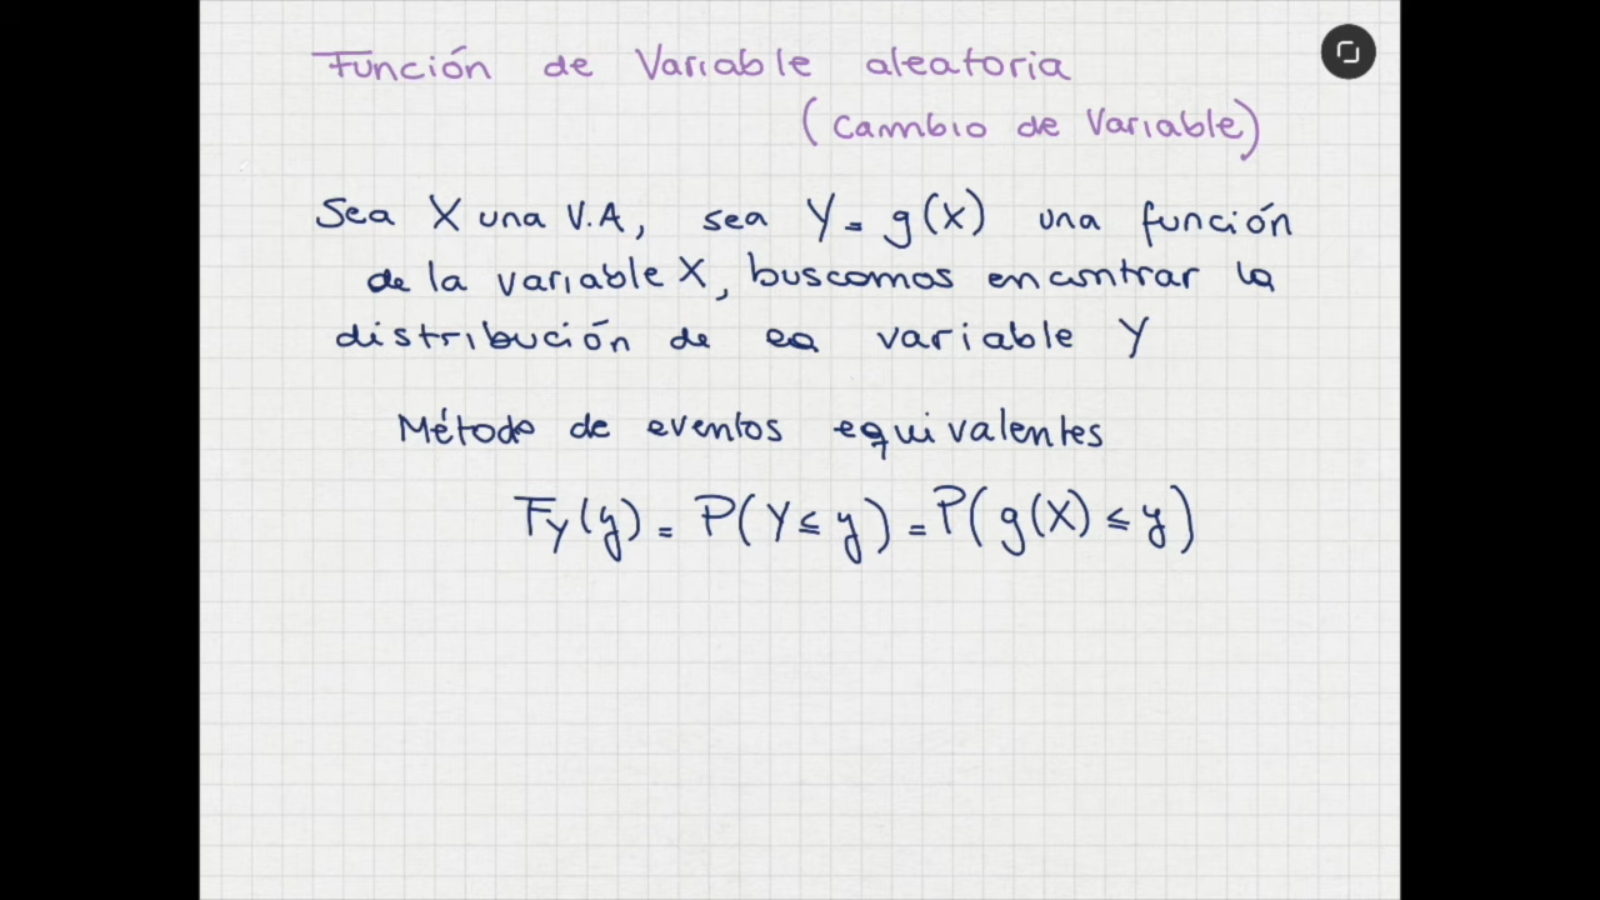 Función de Variable aleatoria
(Cambio de Variable)
Sea X una V.A, sea Y = g(X) una función
de la variable X, buscamos encontrar la
distribución de la variable Y
Método de eventos equivalentes
F_Y(y) = P(Y ≤ y) = P(g(X) ≤ y)